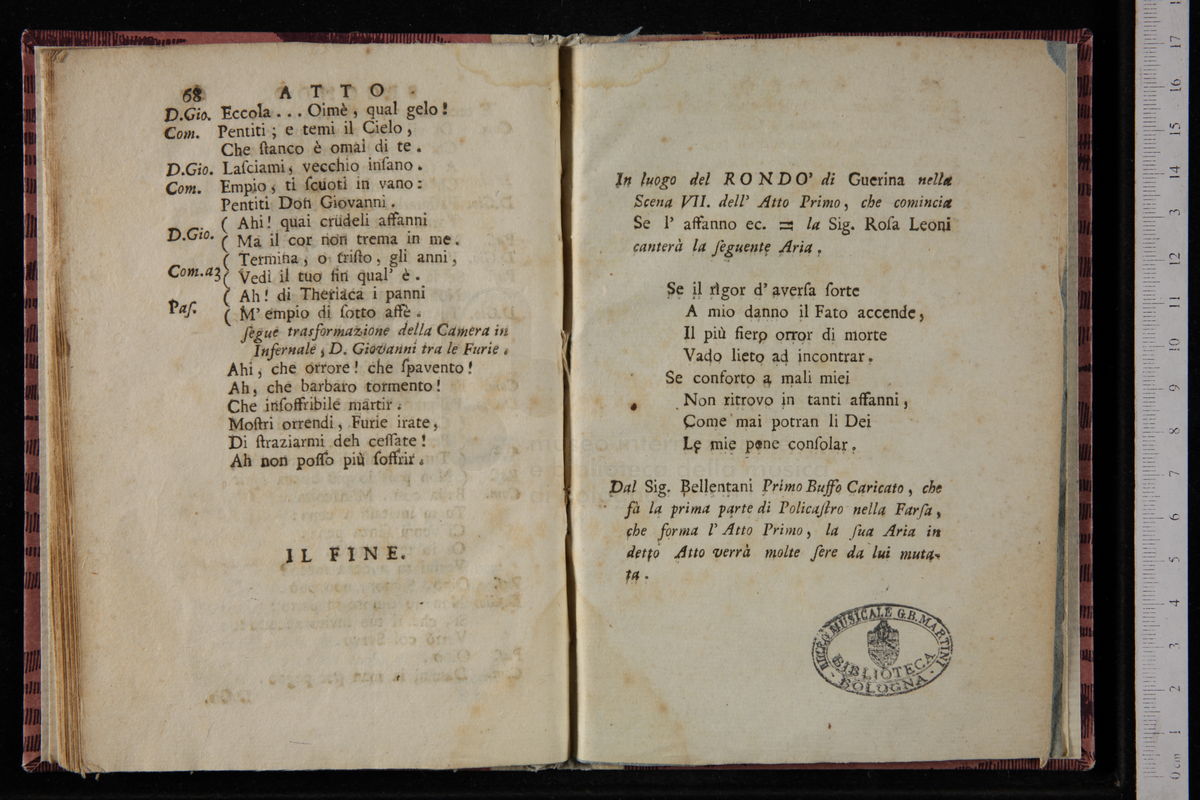 68 ATTO
D.Gio. Eccola... Oimè, qual gelo!
Com. Pentiti; e temi il Cielo,
Che ſtanco è omai di te.
D.Gio. Laſciami, vecchio inſano.
Com. Empio, ti ſcuoti in vano:
Pentiti Don Giovanni.
( Ahi! quai crudeli affanni
D.Gio. ( Ma il cor non trema in me.
( Termina, o triſto, gli anni,
Com.a3 ( Vedi il tuo fin qual' è.
( Ah! di Theriaca i panni
Paſ. ( M' empio di ſotto affè.
ſegue trasformazione della Camera in
Infernale, D. Giovanni tra le Furie.
Ahi, che orrore! che ſpavento!
Ah, che barbaro tormento!
Che inſoffribile martir.
Moſtri orrendi, Furie irate,
Di ſtraziarmi deh ceſſate!
Ah non poſſo più ſoffrir.
IL FINE.
In luogo del RONDO' di Guerina nella
Scena VII. dell' Atto Primo, che comincia
Se l' affanno ec. = la Sig. Roſa Leoni
canterà la ſeguente Aria.
Se il rigor d' averſa ſorte
A mio danno il Fato accende,
Il più fiero orror di morte
Vado lieto ad incontrar.
Se conforto a mali miei
Non ritrovo in tanti affanni,
Come mai potran li Dei
Le mie pene conſolar.
Dal Sig. Bellentani Primo Buffo Caricato, che
fà la prima parte di Policaſtro nella Farſa,
che forma l' Atto Primo, la ſua Aria in
detto Atto verrà molte ſere da lui muta-
ta.
LICEO MUSICALE G.B. MARTINI
BIBLIOTECA
BOLOGNA
0 cm 1 2 3 4 5 6 7 8 9 10 11 12 13 14 15 16 17